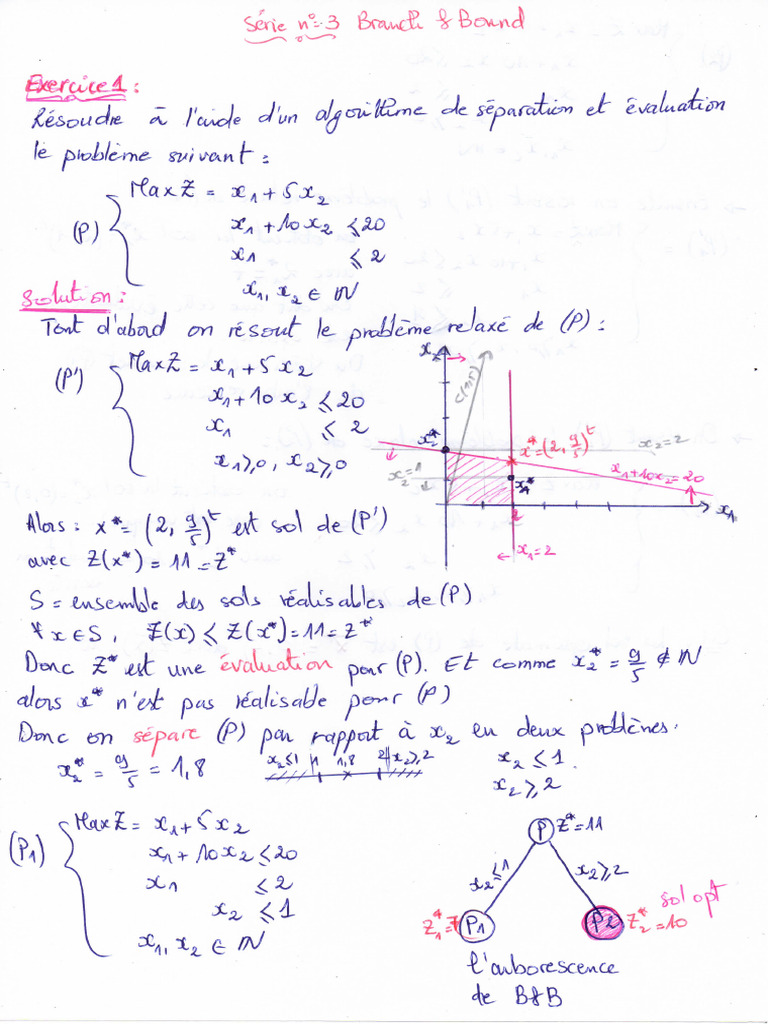 Série n°3 Branch & Bound
Exercice 1 :
Résoudre à l'aide d'un algorithme de séparation et évaluation
le problème suivant :
(P) { Max Z = x₁ + 5x₂
x₁ + 10x₂ ≤ 20
x₁ ≤ 2
x₁, x₂ ∈ ℕ
Solution :
Tout d'abord on résout le problème relaxé de (P) :
(P') { Max Z = x₁ + 5x₂
x₁ + 10x₂ ≤ 20
x₁ ≤ 2
x₁ ≥ 0, x₂ ≥ 0
x₂
C(1,5)
x₂*
x* = (2, 9/5)ᵗ
x₂ = 2
x₂ = 1
x₁*
x₁ + 10x₂ = 20
2
x₁
x₁ = 2
Alors : x* = (2, 9/5)ᵗ est sol de (P')
avec Z(x*) = 11 = Z*
S = ensemble des sols réalisables de (P)
∀ x ∈ S, Z(x) ≤ Z(x*) = 11 = Z*
Donc Z* est une évaluation pour (P). Et comme x₂* = 9/5 ∉ ℕ
alors x* n'est pas réalisable pour (P)
Donc on sépare (P) par rapport à x₂ en deux problèmes.
x₂* = 9/5 = 1,8
x₂ ≤ 1 1 1,8 2 x₂ ≥ 2
x₂ ≤ 1.
x₂ ≥ 2
(P₁) { Max Z = x₁ + 5x₂
x₁ + 10x₂ ≤ 20
x₁ ≤ 2
x₂ ≤ 1
x₁, x₂ ∈ ℕ
P Z* = 11
x₂ ≤ 1
x₂ ≥ 2
Z₁* = 7 P₁
P₂ Z₂* = 10
sol opt
l'arborescence
de B&B